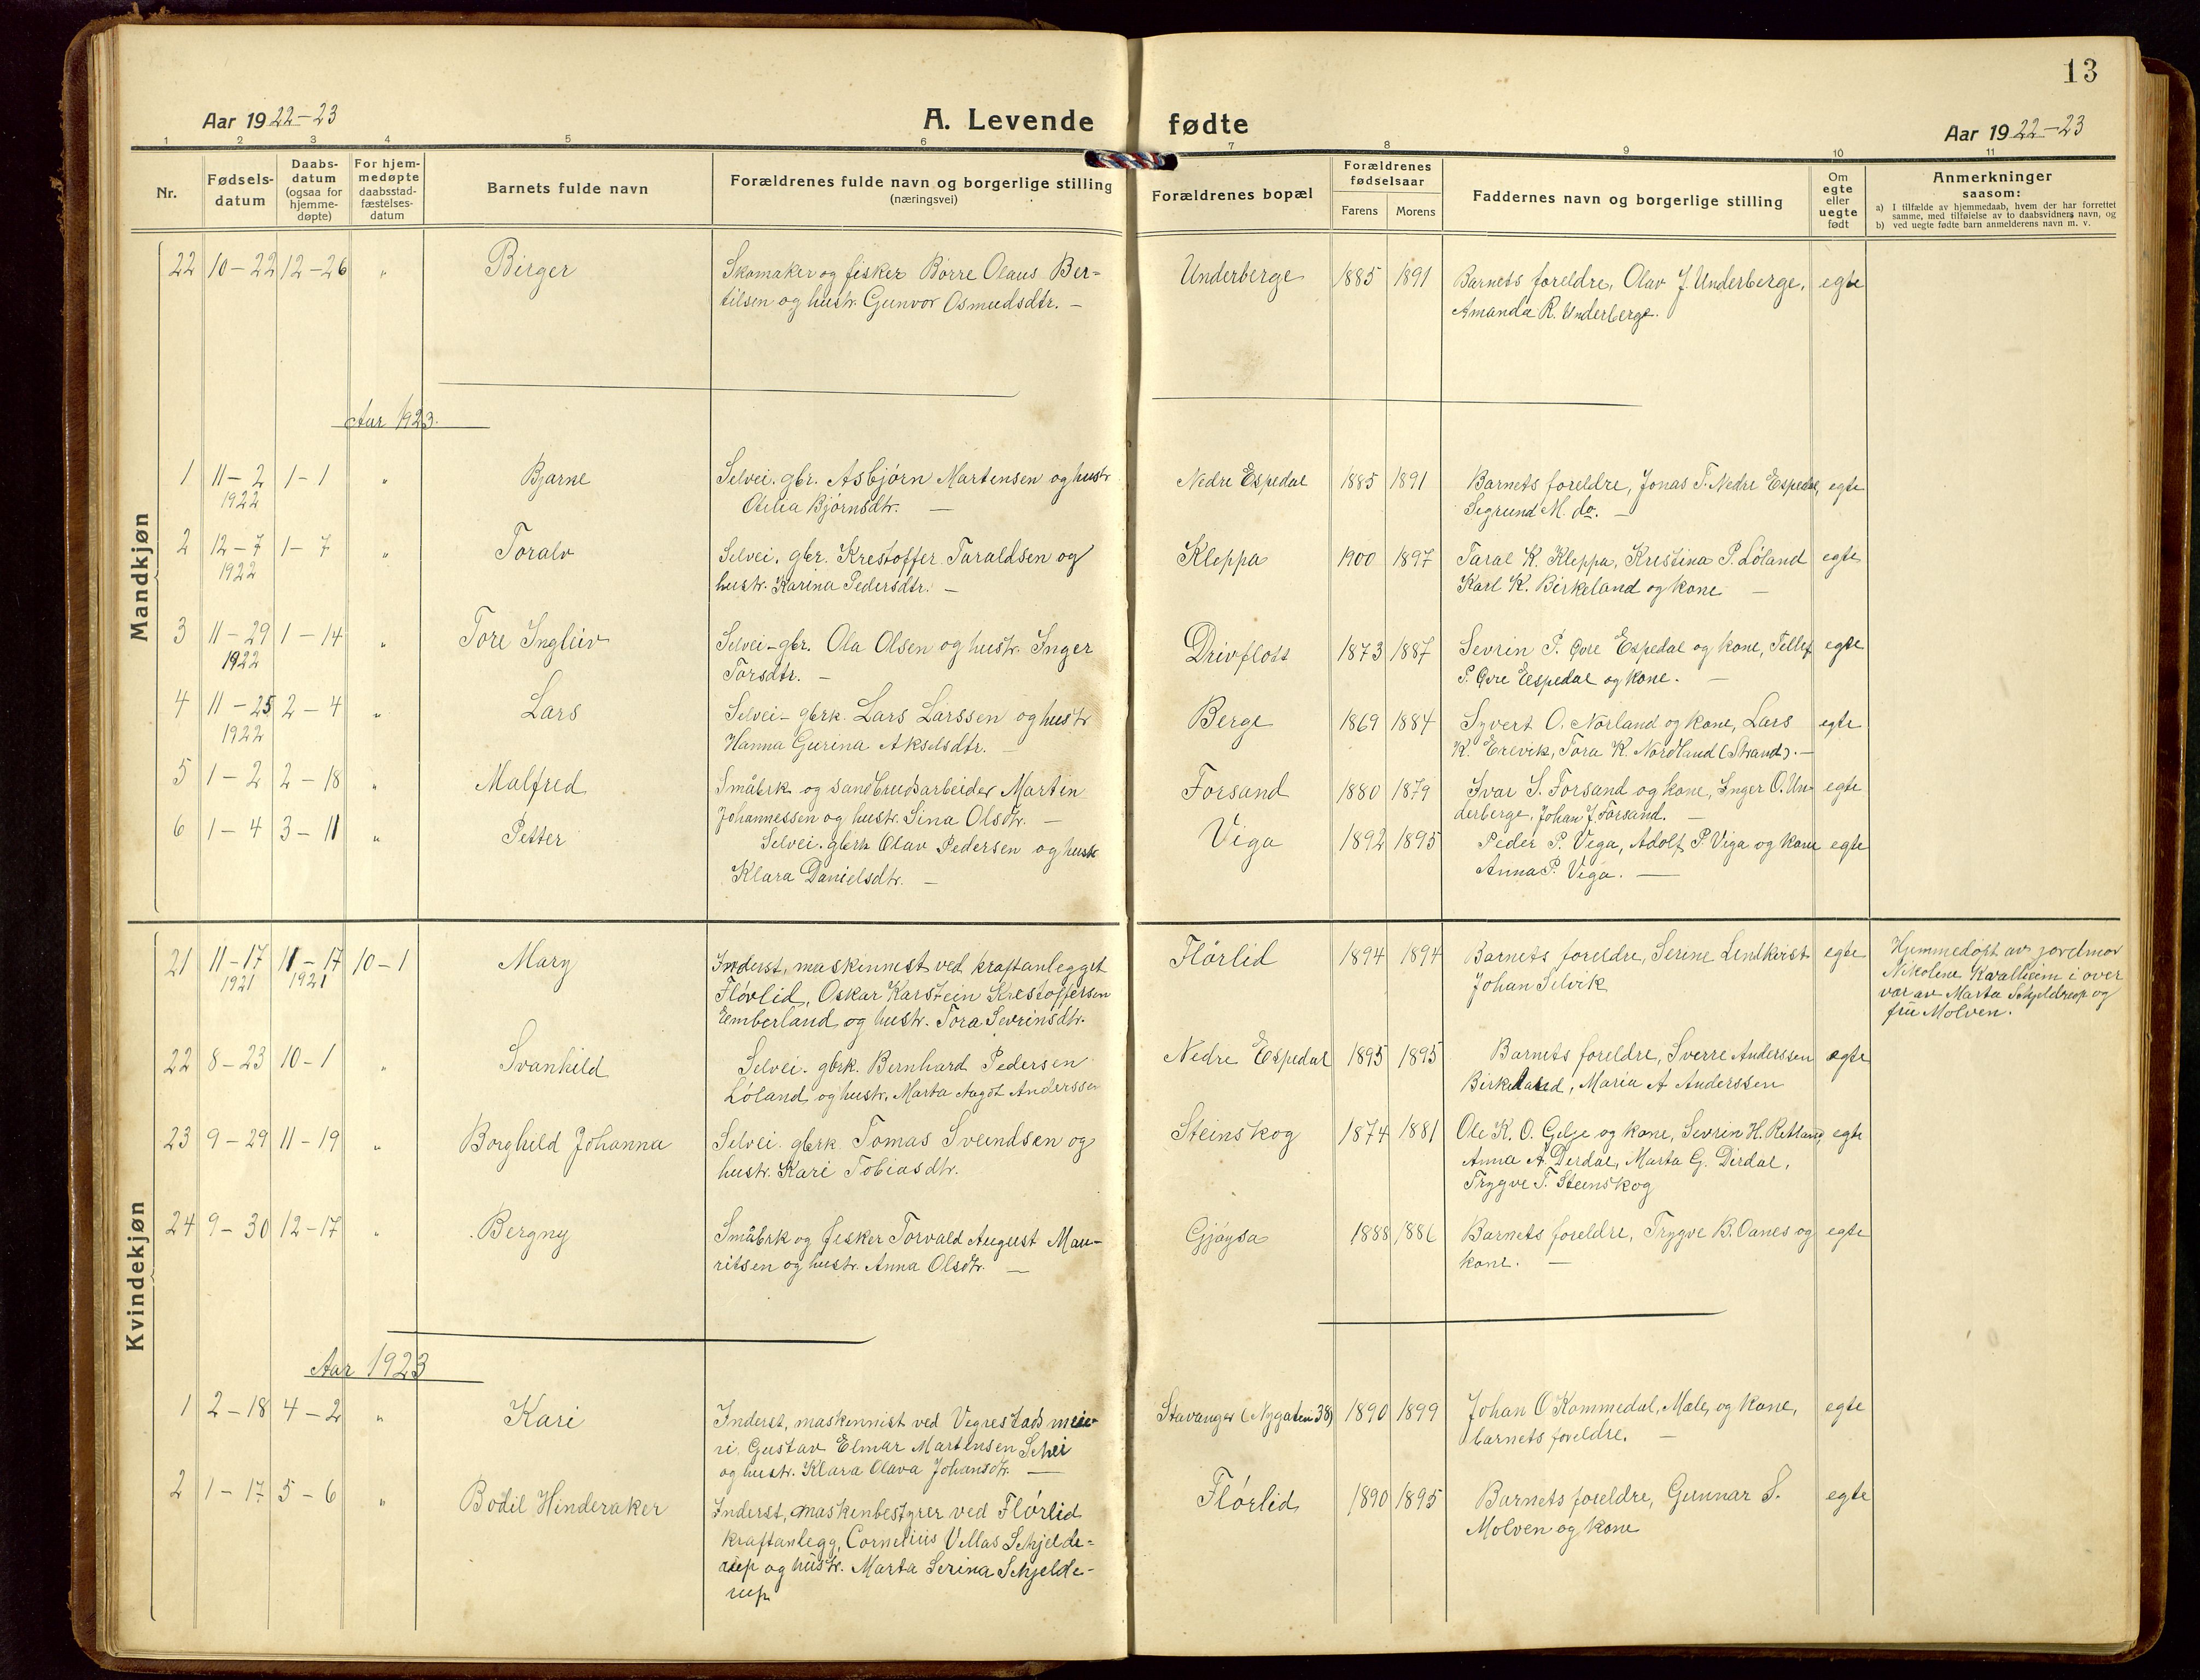 13
Aar 1922-23
A. Levende fødte
Aar 1922-23
1 2 3 4 5 6 7 8 9 10 11
Nr.
Fødsels-
datum
Daabs-
datum
(ogsaa for
hjemme-
døpte)
For hjem-
medøpte
daabsstad-
fæstelses-
datum
Barnets fulde navn
Forældrenes fulde navn og borgerlige stilling
(næringsvei)
Forældrenes bopæl
Forældrenes
fødselsaar
Farens Morens
Faddernes navn og borgerlige stilling
Om
egte
eller
uegte
født
Anmerkninger
saasom:
a) I tilfælde av hjemmedaab, hvem der har forrettet
samme, med tilføielse av to daabsvidners navn, og
b) ved uegte fødte barn anmelderens navn m. v.
Mandkjøn
22 10-22 12-26 " Birger
Skomaker og fisker Børre Olaus Ber-
tilsen og hustr. Gunvor Osmundsdtr. -
Underberge 1885 1891
Barnets foreldre, Olav J. Underberge,
Amanda R. Underberge.
egte
Aar 1923.
1 11-2 1-1 " Bjarne
1922
Selvei. gbr. Asbjørn Martensen og hustr
Otilia Bjørnsdtr. -
Nedre Espedal 1885 1891
Barnets foreldre, Jonas T. Nedre Espedal,
Sigrund M. do. -
egte
2 12-7 1-7 " Toralv
1922
Selvei. gbr. Kristoffer Taraldsen og
hustr. Karina Pedersdtr. -
Kleppa 1900 1897
Taral K. Kleppa, Kristina P. Løland
Karl K. Birkeland og kone -
egte
3 11-29 1-14 " Tore Ingleiv
1922
Selvei-gbr. Ola Olsen og hustr. Inger
Torsdtr. -
Drivfloss 1873 1887
Sevrin P. Øvre Espedal og kone, Tellef
P. Øvre Espedal og kone. -
egte
4 11-25 2-4 " Lars
1922
Selvei-gbrk. Lars Larssen og hustr
Hanna Gurina Akselsdtr. -
Berge 1869 1884
Syvert O. Norland og kone, Lars
K. Erevik, Tora K. Nordland (Strand). -
egte
5 1-2 2-18 " Malfred
Småbrk og sandbrudsarbeider Martin
Johannessen og hustr. Sina Olsdtr. -
Forsand 1880 1879
Ivar S. Forsand og kone, Inger O. Un-
derberge, Johan J. Forsand. -
egte
6 1-4 3-11 " Petter
Selvei. gbrk Olav Pedersen og hustr
Klara Danielsdtr. -
Viga 1892 1895
Peder P. Viga, Adolf P. Viga og kone
Anna P. Viga. -
egte
Kvindekjøn
21 11-17 11-17 10-1 Mary
1921 1921
Inderst, maskinnist ved kraftanlegget
Flørlid, Oskar Karstein Kristoffersen
Emberland og hustr. Tora Sevrinsdtr.
Flørlid 1894 1894
Barnets foreldre, Serine Lendkvist
Johan Selvik
egte
Hjemmedøpt av jordmor
Nikoline Kvalheim i over
vær av Marta Schjelderup og
fru Molven.
22 8-23 10-1 " Svanhild
Selvei. gbrk. Bernhard Pedersen
Løland og hustr. Marta Aagot Anderssen
Nedre Espedal 1895 1895
Barnets foreldre, Sverre Anderssen
Birkeland, Maria A Anderssen
egte
23 9-29 11-19 " Borghild Johanna
Selvei. gbrk. Tomas Sveindsen og
hustr. Kari Tobiasdtr.
Steinskog 1874 1881
Ole K. O. Gilje og kone, Sevrin H. Retland
Anna A. Dirdal, Marta G. Dirdal,
Trygve T. Steinskog
egte
24 9-30 12-17 " Bergny
Småbrk og fisker Torvald August Mau-
ritsen og hustr. Anna Olsdtr. -
Gjøysa 1888 1886
Barnets foreldre, Trygve B. Oanes og
kone. -
egte
Aar 1923
1 2-18 4-2 " Kari
Inderst, maskinnist ved Vigrestads meie-
ri, Gustav Elmar Martinsen Schei
og hustr. Klara Olava Johansdtr. -
Stavanger (Nygaten 38) 1890 1899
Johan O Kommedal, Mæle, og kone,
barnets foreldre. -
egte
2 1-17 5-6 " Bodil Hinderaker
Inderst, maskinbestyrer ved Flørlid
kraftanlegg, Cornelius Vellas Schjelde-
rup og hustr. Marta Serina Schjelde-
rup
Flørlid 1890 1895
Barnets foreldre, Gunnar S.
Molven og kone
egte